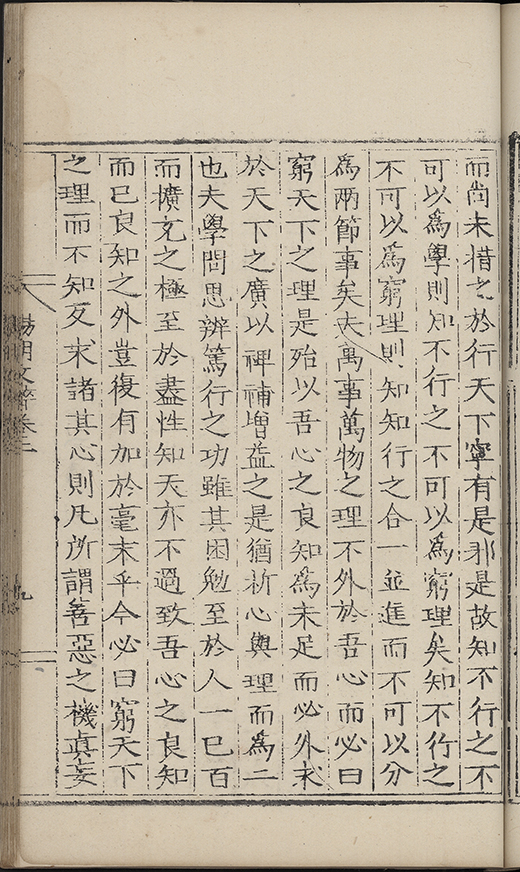 而尚未措之於行天下寧有是邪是故知不行之不
可以爲學則知不行之不可以爲窮理矣知不行之
不可以爲窮理則知知行之合一並進而不可以分
爲兩節事矣夫萬事萬物之理不外於吾心而必曰
窮天下之理是殆以吾心之良知爲未足而必外求
於天下之廣以裨補增益之是猶析心與理而爲二
也夫學問思辨篤行之功雖其困勉至於人一已百
而擴充之極至於盡性知天亦不過致吾心之良知
而已良知之外豈復有加於毫末乎今必曰窮天下
之理而不知反求諸其心則凡所謂善惡之機眞妄
陽明文
卷二
九